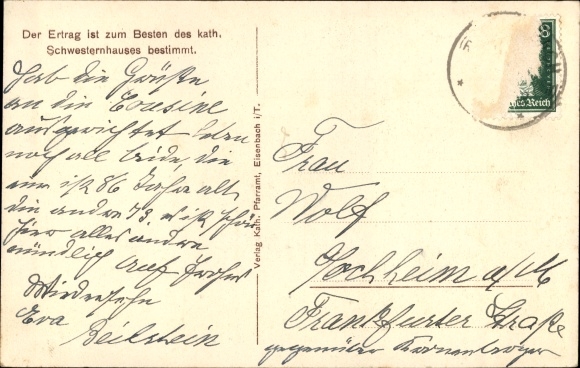 Der Ertrag ist zum Besten des kath.
Schwesternhauses bestimmt.
Hab die Grüße
an die Cousine
ausgerichtet leben
noch all beide, die
eine ist 86 Jahre alt,
die andre 73. es ist schön
hier alles andre
mündlich auf frohes
Wiedersehn
Eva
Beilstein
Verlag Kath. Pfarramt, Eisenbach i/T.
8
Reich
Frau
Wolf
Hochheim a/M
Frankfurter Straße
gegenüber